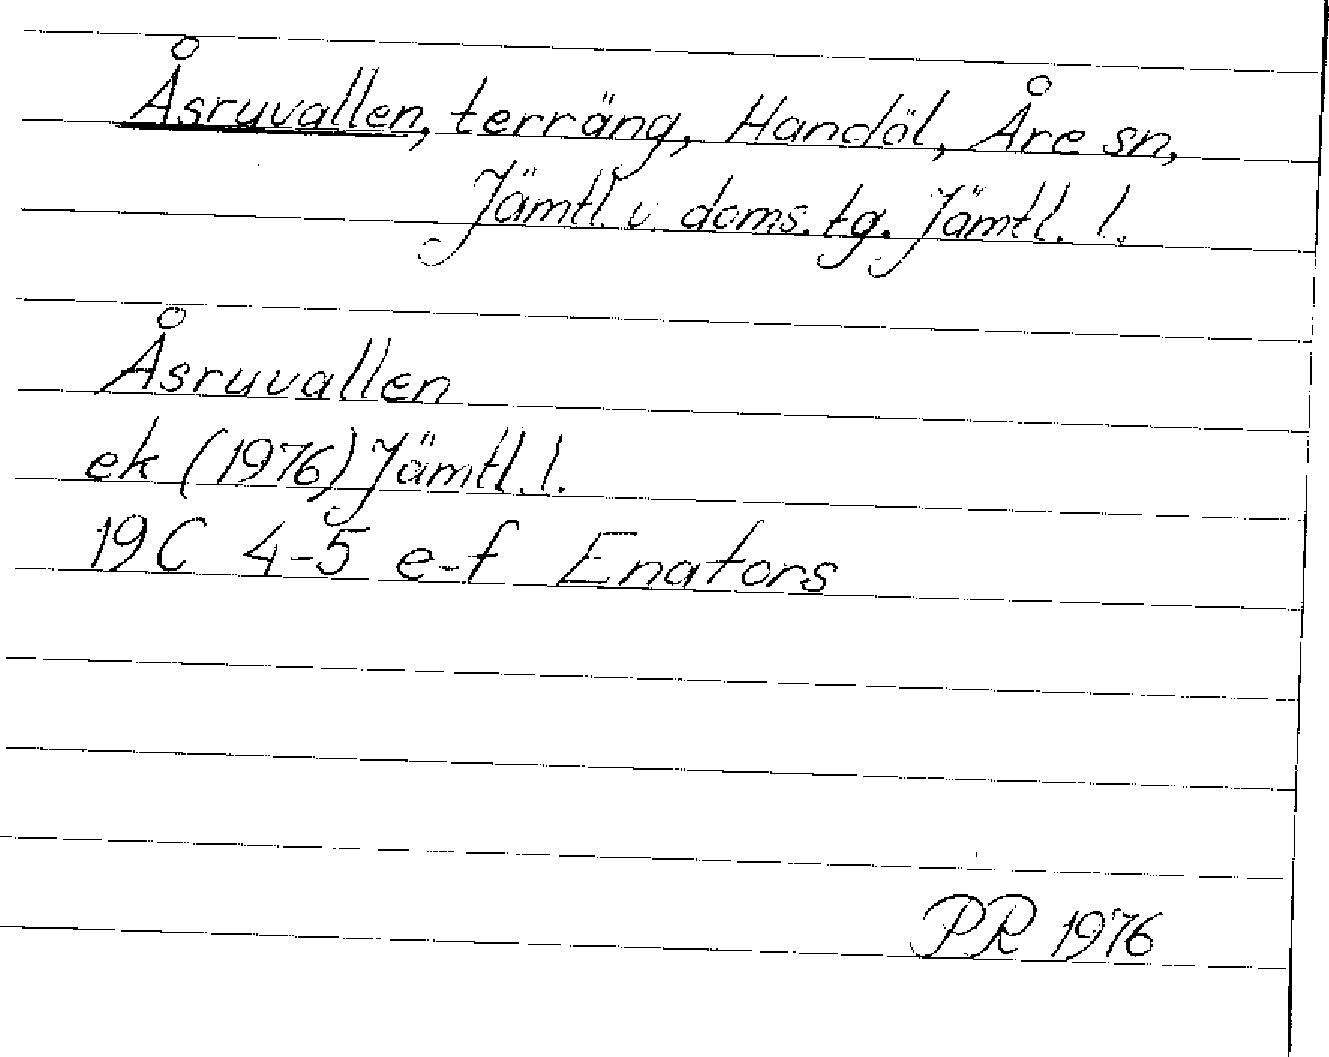 Åsruvallen, terräng, Handöl, Åre sn,
Jämtl. v. doms. tg. Jämtl. l.
Åsruvallen
ek (1976) Jämtl. l.
19C 4-5 e-f Enafors
PR 1976